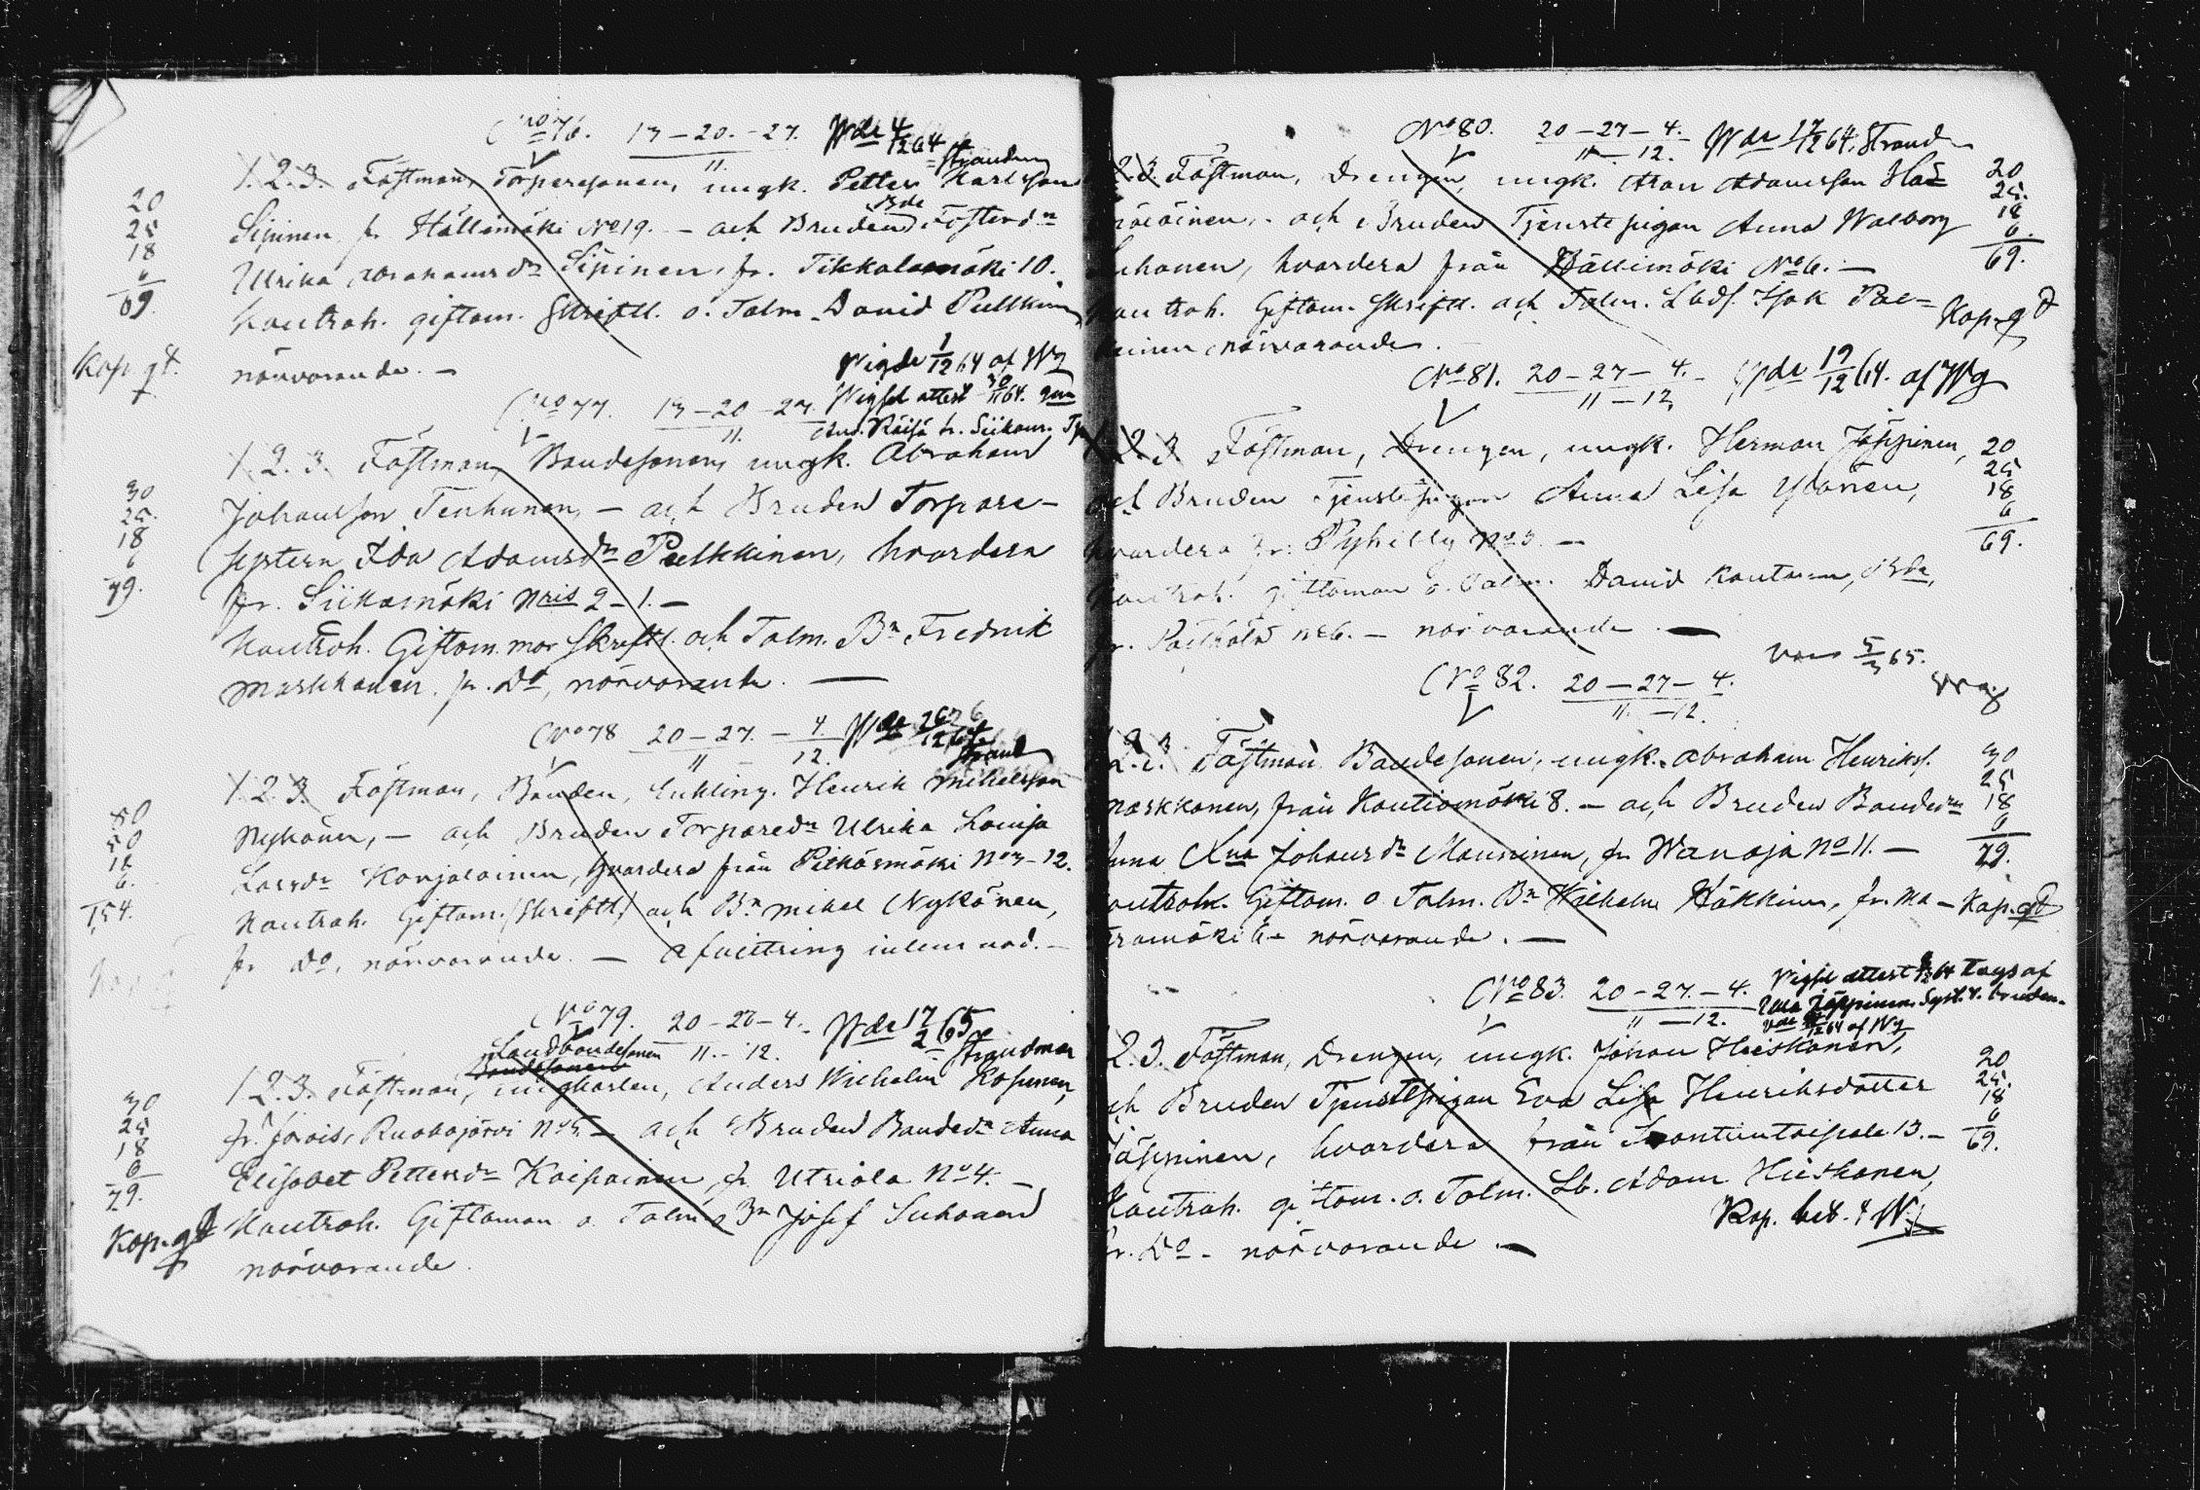 No 76. 13 – 20. – 27. Wde 4/12 64
11. Strandm
1. 2. 3. Fästman, Torparesonen, ungk. Petter Karlsson
Bde
Sipinen, fr. Hällämäki No 19. – och Bruden Fosterdn
Ulrika Abrahamsdn Sipinen, fr. Tikkalamäki 10.
Kontrah. giftom. Skriftl. o. Talm. David Pulkkin
närvarande. –
20
25
18
6
69.
Kop. gt.
Wigde 1/12 64 af Wg
No 77. 13 – 20 – 27. Wigsel attest 30/11 64. gm
11. And. Räisä fr. Siikam.
1. 2. 3. Fästman, Bondesonen, ungk. Abraham
Johansson Tenhunen, – och Bruden Torpare-
systern Ida Adamsdn Pulkkinen, hvardera
fr. Siikamäki Nris 2 – 1. –
Kontrah. Giftom. mor Skriftl. och Talm. Bn Fredrik
Markkanen. fr. Do, närvarande. –
30
25.
18
6
79.
No 78 20 – 27. – 4. Wde 26/12 64
11 – 12. Strand
1. 2. 3. Fästman, Bonden, Enkling. Henrik Mikelsson
Nykänen, – och Bruden Torparedn Ulrika Lovisa
Larsdn Karjalainen, hvardera från Pitkäsmäki No 3 – 12.
Kontrah. Giftom. (Skriftl.) och Bn Mikel Nykänen,
fr Do, närvarande. – Afvittring inlemnad. –
80
50
18
6.
154.
No 79. 20 – 27 – 4. Wde 17/2 65
Landbondesonen 11. – 12. Strandman
Bondesonen
1. 2. 3. Fästman, ungkarlen, Anders Wilhelm Kosunen,
fr. Jorois, Ruokojärvi No 5. – och Bruden Bondedn Anna
Elisabet Pettersdn Kaipainen, fr Utriala No 4. –
Kontrah. Giftoman o. Talm. Bn Josef Suhonen
närvarande.
30
25
18
6
79.
Kop. gt
No 80. 20 – 27 – 4. Wde 17/12 64. Strand
11 – 12.
2. 3 Fästman, Drengen, ungk. Aron Adamsson Hä-
mäläinen, – och Bruden Tjenstepigan Anna Walborg
Suhonen, hvardera från Hällimäki No 6. –
Kontrah. Giftom. Skriftl. och Talm. Lbdf. Isak Pul-
kinen närvarande.
20
25.
18
6.
69.
Kop. gt
No 81. 20 – 27 – 4. – Wde 19/12 64. af Wg
11 – 12,
1. 2. 3. Fästman, Drengen, ungk. Herman Jäppinen,
och Bruden Tjenstepigan Anna Lisa Ylönen,
hvardera fr. Pyhitty No 3. –
Kontrah. giftoman o. Talm. David Kautonen, Bde,
fr. No 6. – närvarande. –
20
25
18
6
69.
No 82. 20 – 27 – 4. 5/3 65.
11. – 12. Wg
1. 2. 3. Fästman Bondesonen, ungk. Abraham Henriksf.
Markkanen, från Kontiomäki 8. – och Bruden Bondedn
Anna Kna Johansdn Manninen, fr Wanaja No 11. –
Kontrah. Giftom. o Talm. Bn Wilhelm Häkkinen, fr. Ma-
ramäki 6 – närvarande. –
30
25
18
6
79.
Kop. gt
No 83. 20 – 27. – 4. Vigsel attest 8/12 64 tags af
11 – 12. Jäppinen. Syst. t. bruden.
Vde /12 64 af Wg
2. 3. Fästman, Drengen, ungk. Johan Hieskanen,
och Bruden Tjenstepigan Eva Lisa Henriksdotter
Jäppinen, hvardera från Kontiontaipale 13. –
Kontrah. giftom. o. Talm. Lb. Adam Hieskanen,
fr. Do – närvarande –
20
25.
18
6
69.
Kop. bet. t Wg